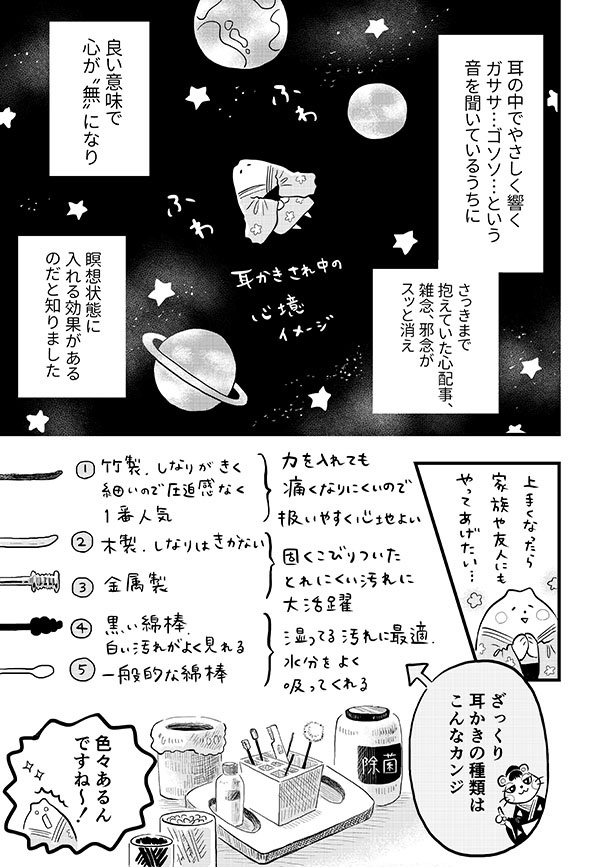 耳の中でやさしく響く
ガササ…ゴソソ…という
音を聞いているうちに
さっきまで
抱えていた心配事、
雑念、邪念が
スッと消え
ふわ
ふわ
耳かきされ中の
心境
イメージ
良い意味で
心が〝無〟になり
瞑想状態に
入れる効果がある
のだと知りました
上手くなったら
家族や友人にも
やってあげたい…
①竹製.しなりがきく
細いので圧迫感なく
1番人気
力を入れても
痛くなりにくいので
扱いやすく心地よい
②木製.しなりはきかない
③金属製
固くこびりついた
とれにくい汚れに
大活躍
④黒い綿棒.
白い汚れがよく見れる
⑤一般的な綿棒
湿ってる汚れに最適.
水分をよく
吸ってくれる
ざっくり
耳かきの種類は
こんなカンジ
除菌
色々あるん
ですね〜!